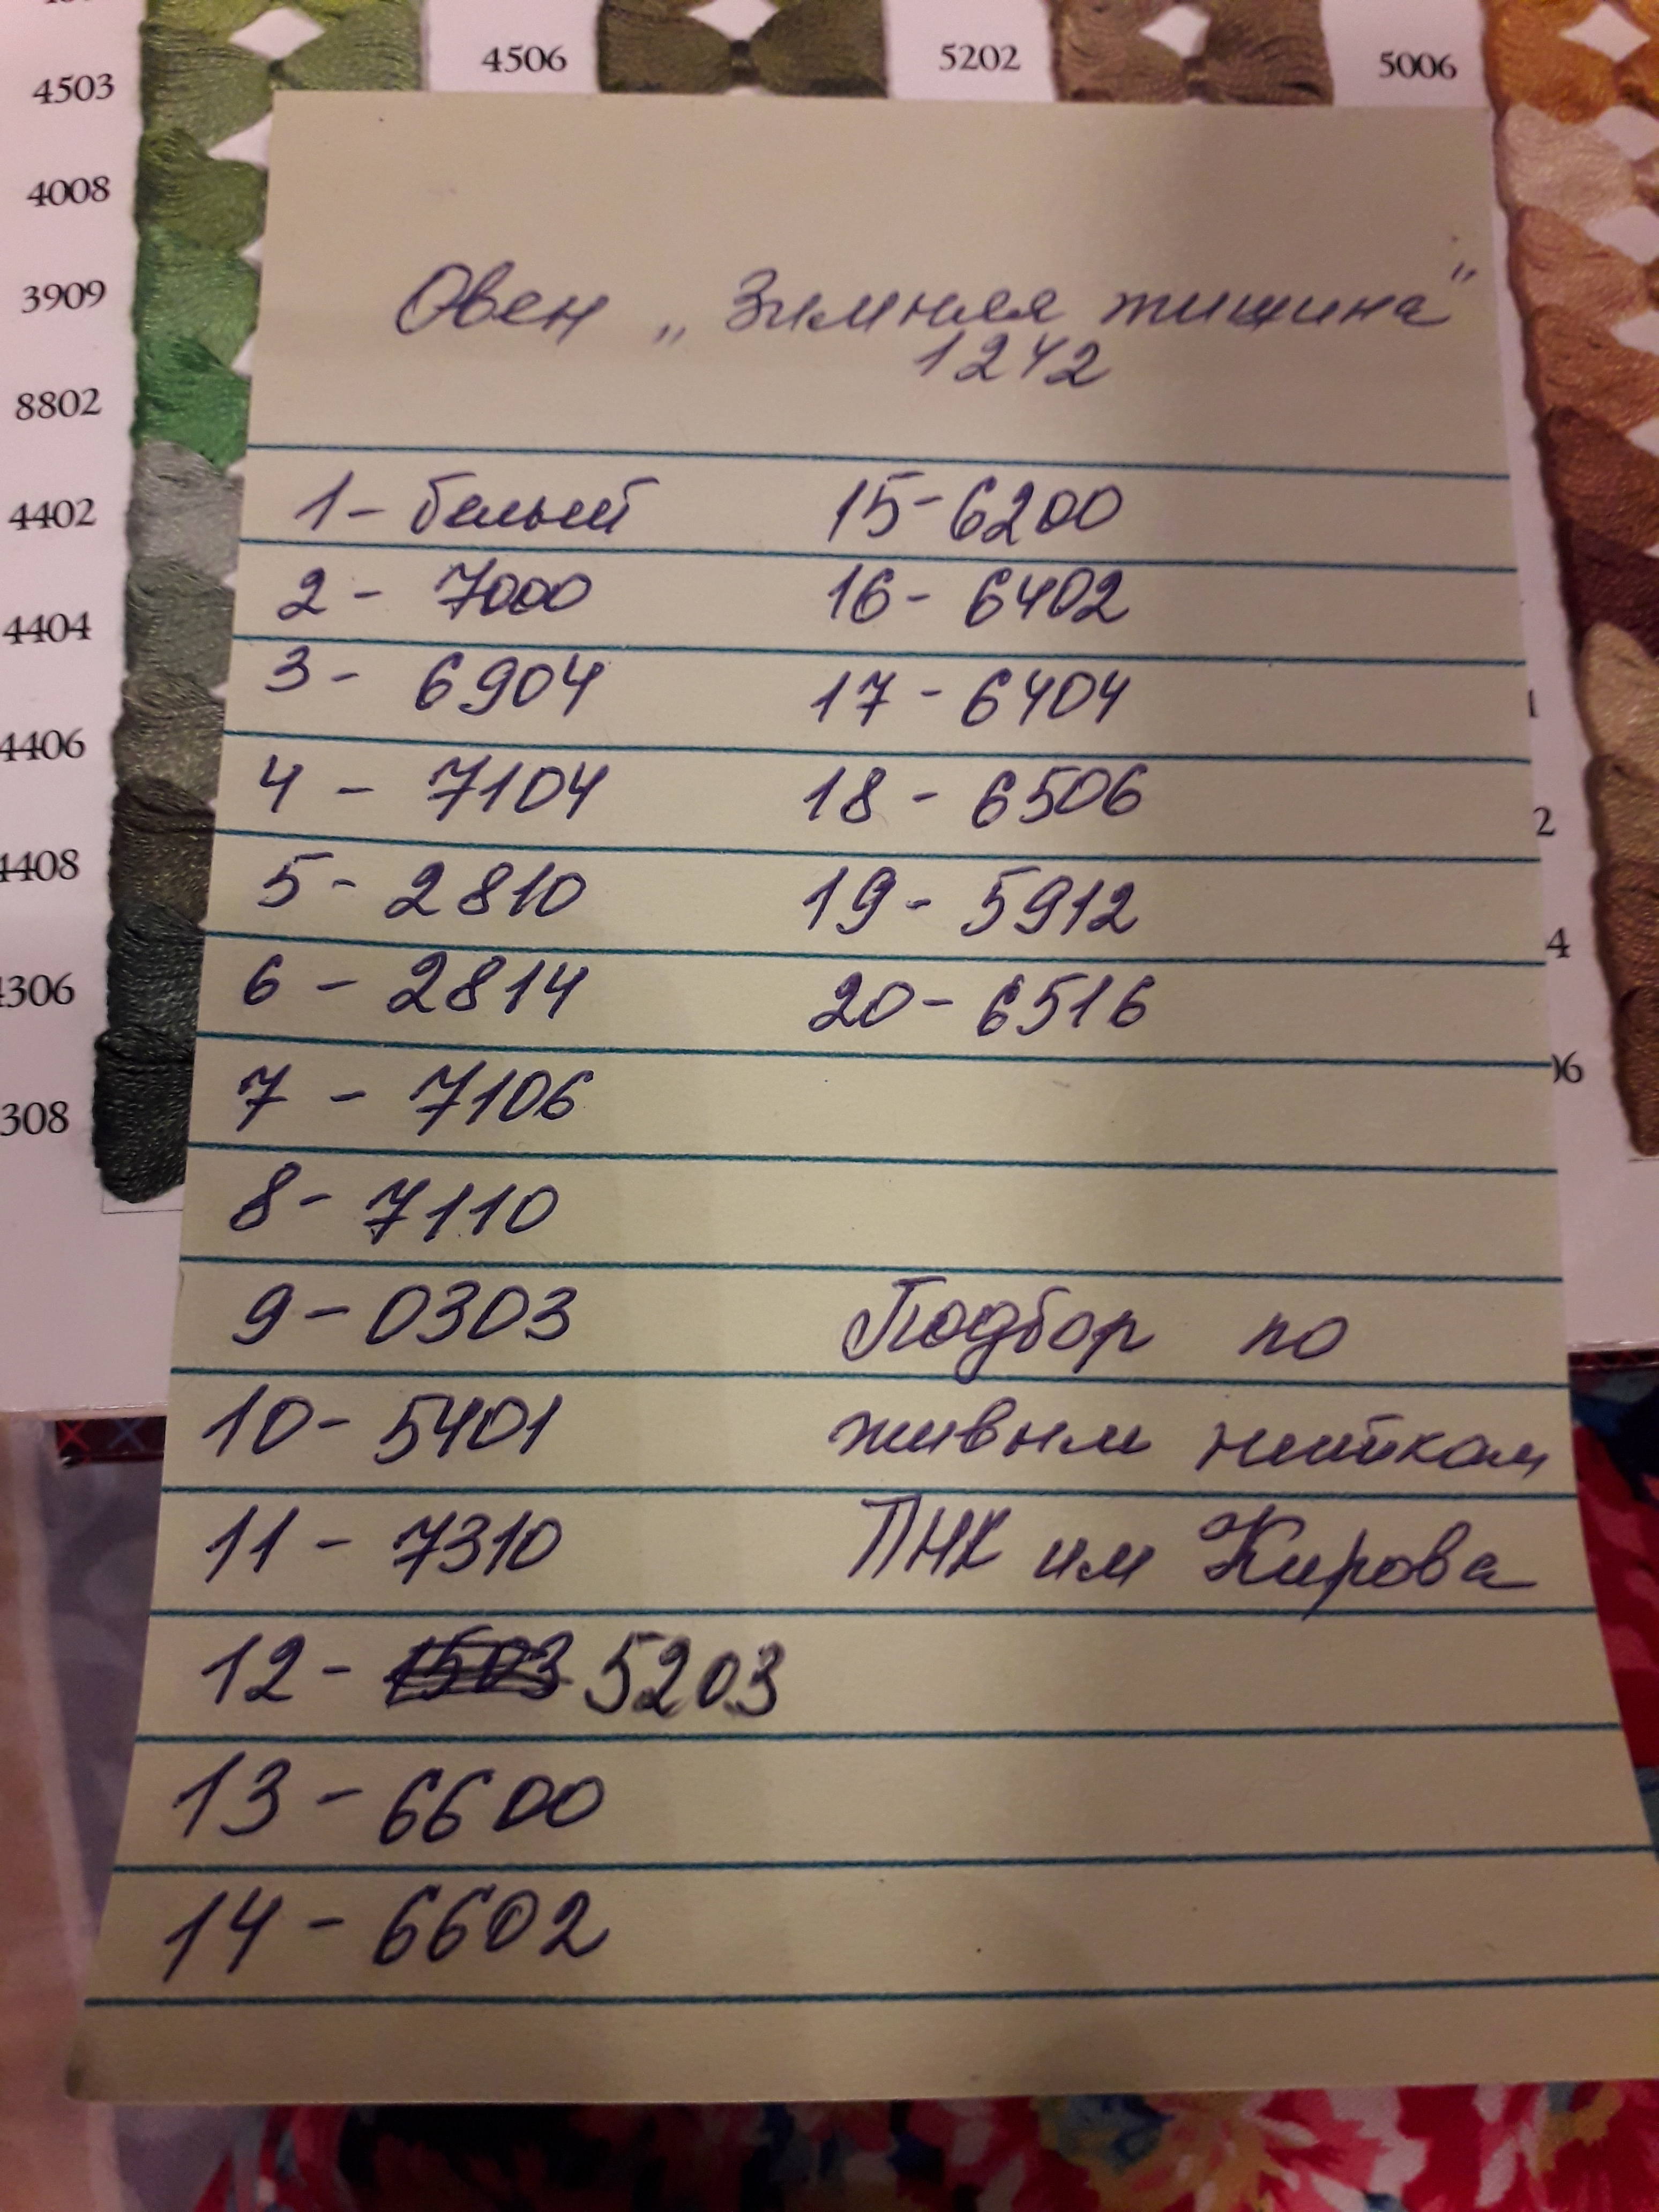 4503
4506
5202
5006
4008
3909
8802
4402
4404
4406
4408
4306
308
Овен „Зимняя тишина"
1242
1 - белый
2 - 7000
3 - 6904
4 - 7104
5 - 2810
6 - 2814
7 - 7106
8 - 7110
9 - 0303
10 - 5401
11 - 7310
12 - 1503 5203
13 - 6600
14 - 6602
15 - 6200
16 - 6402
17 - 6404
18 - 6506
19 - 5912
20 - 6516
Подбор по
живым ниткам
ПНК им Кирова
2
4
06